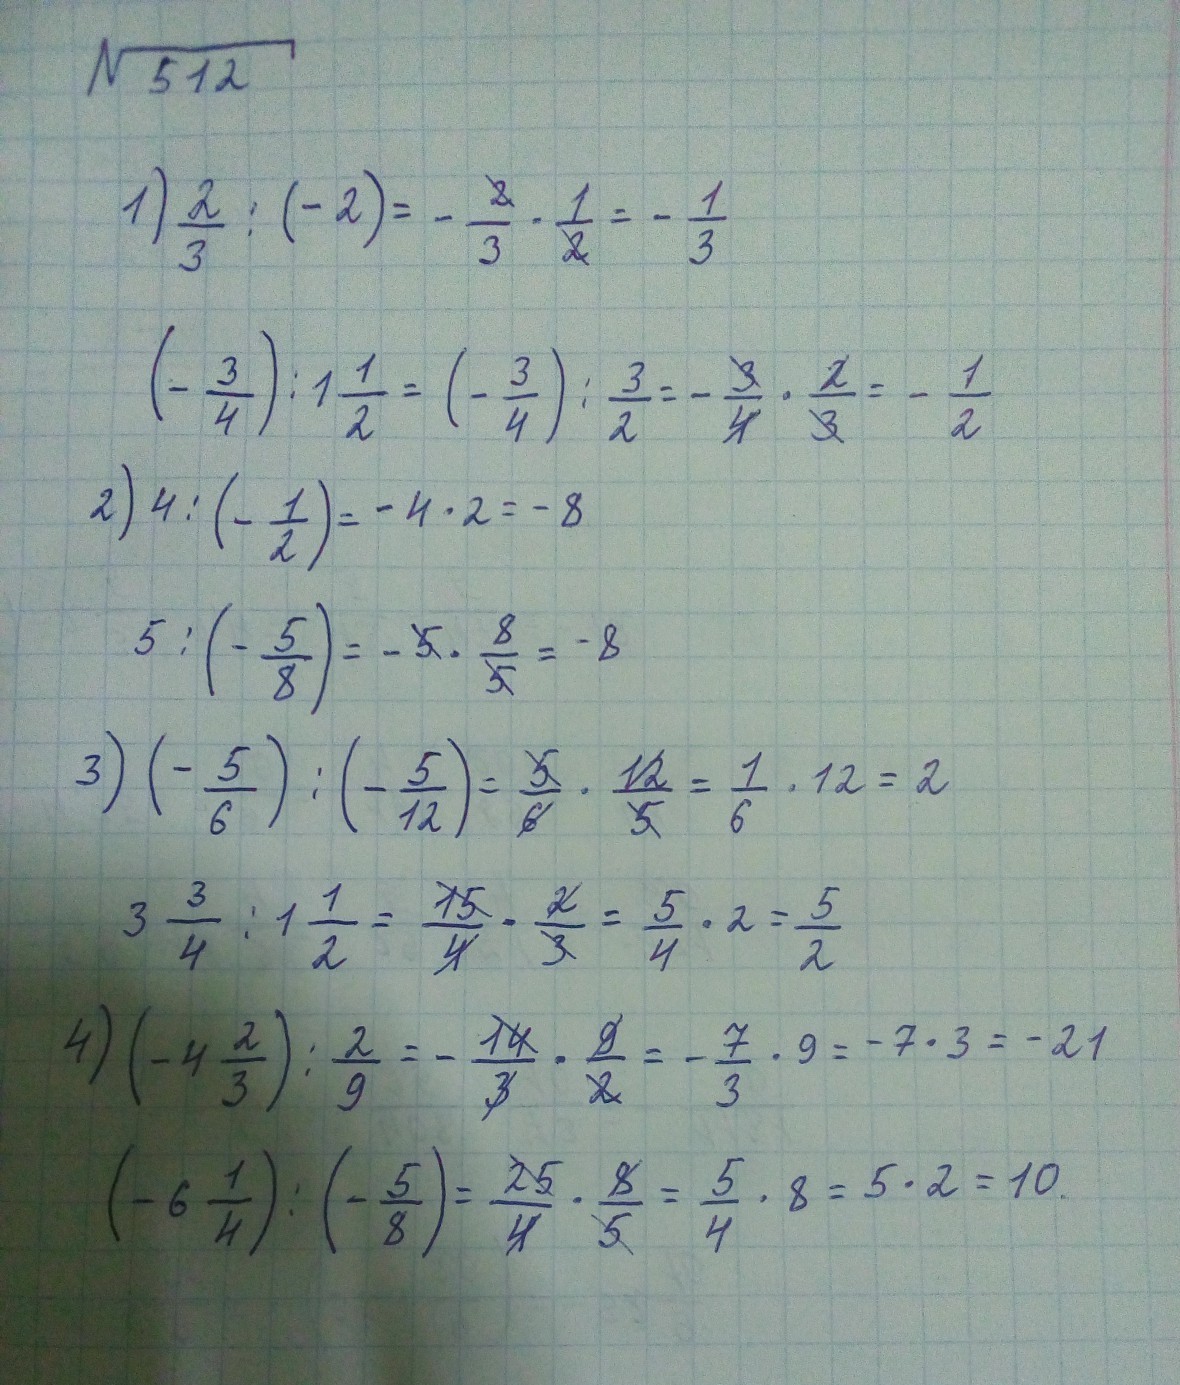 N 512
1) 2/3 : (-2) = - 2/3 · 1/2 = - 1/3
(- 3/4) : 1 1/2 = (- 3/4) : 3/2 = - 3/4 · 2/3 = - 1/2
2) 4 : (- 1/2) = - 4 · 2 = - 8
5 : (- 5/8) = - 5 · 8/5 = - 8
3) (- 5/6) : (- 5/12) = 5/6 · 12/5 = 1/6 · 12 = 2
3 3/4 : 1 1/2 = 15/4 · 2/3 = 5/4 · 2 = 5/2
4) (- 4 2/3) : 2/9 = - 14/3 · 9/2 = - 7/3 · 9 = - 7 · 3 = - 21
(- 6 1/4) : (- 5/8) = 25/4 · 8/5 = 5/4 · 8 = 5 · 2 = 10.